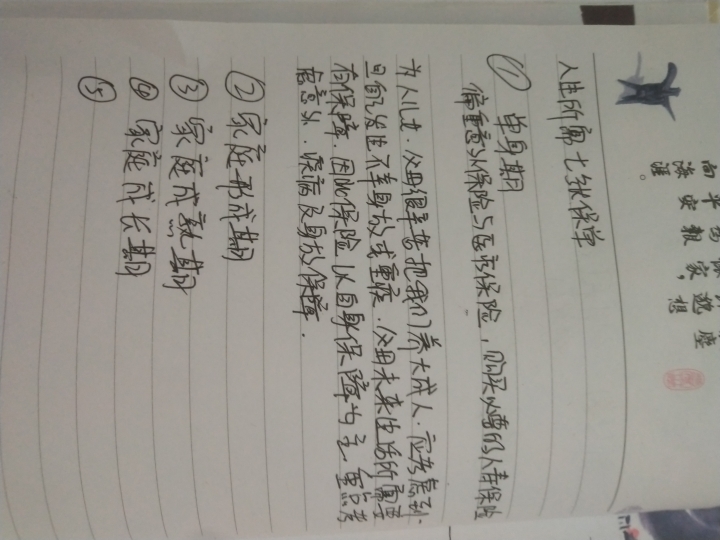 人生所需七张保单
① 单身期
偏重意外保险与医疗保险，购买必要的人寿保险
为人儿女．父母很辛苦把我们养大成人．应考虑到．
旦自己发生不幸身故或重疾．父母未来生活所需要
有保障．因此保险以自身保障为主．重点考
虑意外．疾病及身故保障．
② 家庭形成期
③ 家庭成熟期
④ 家庭成长期
⑤